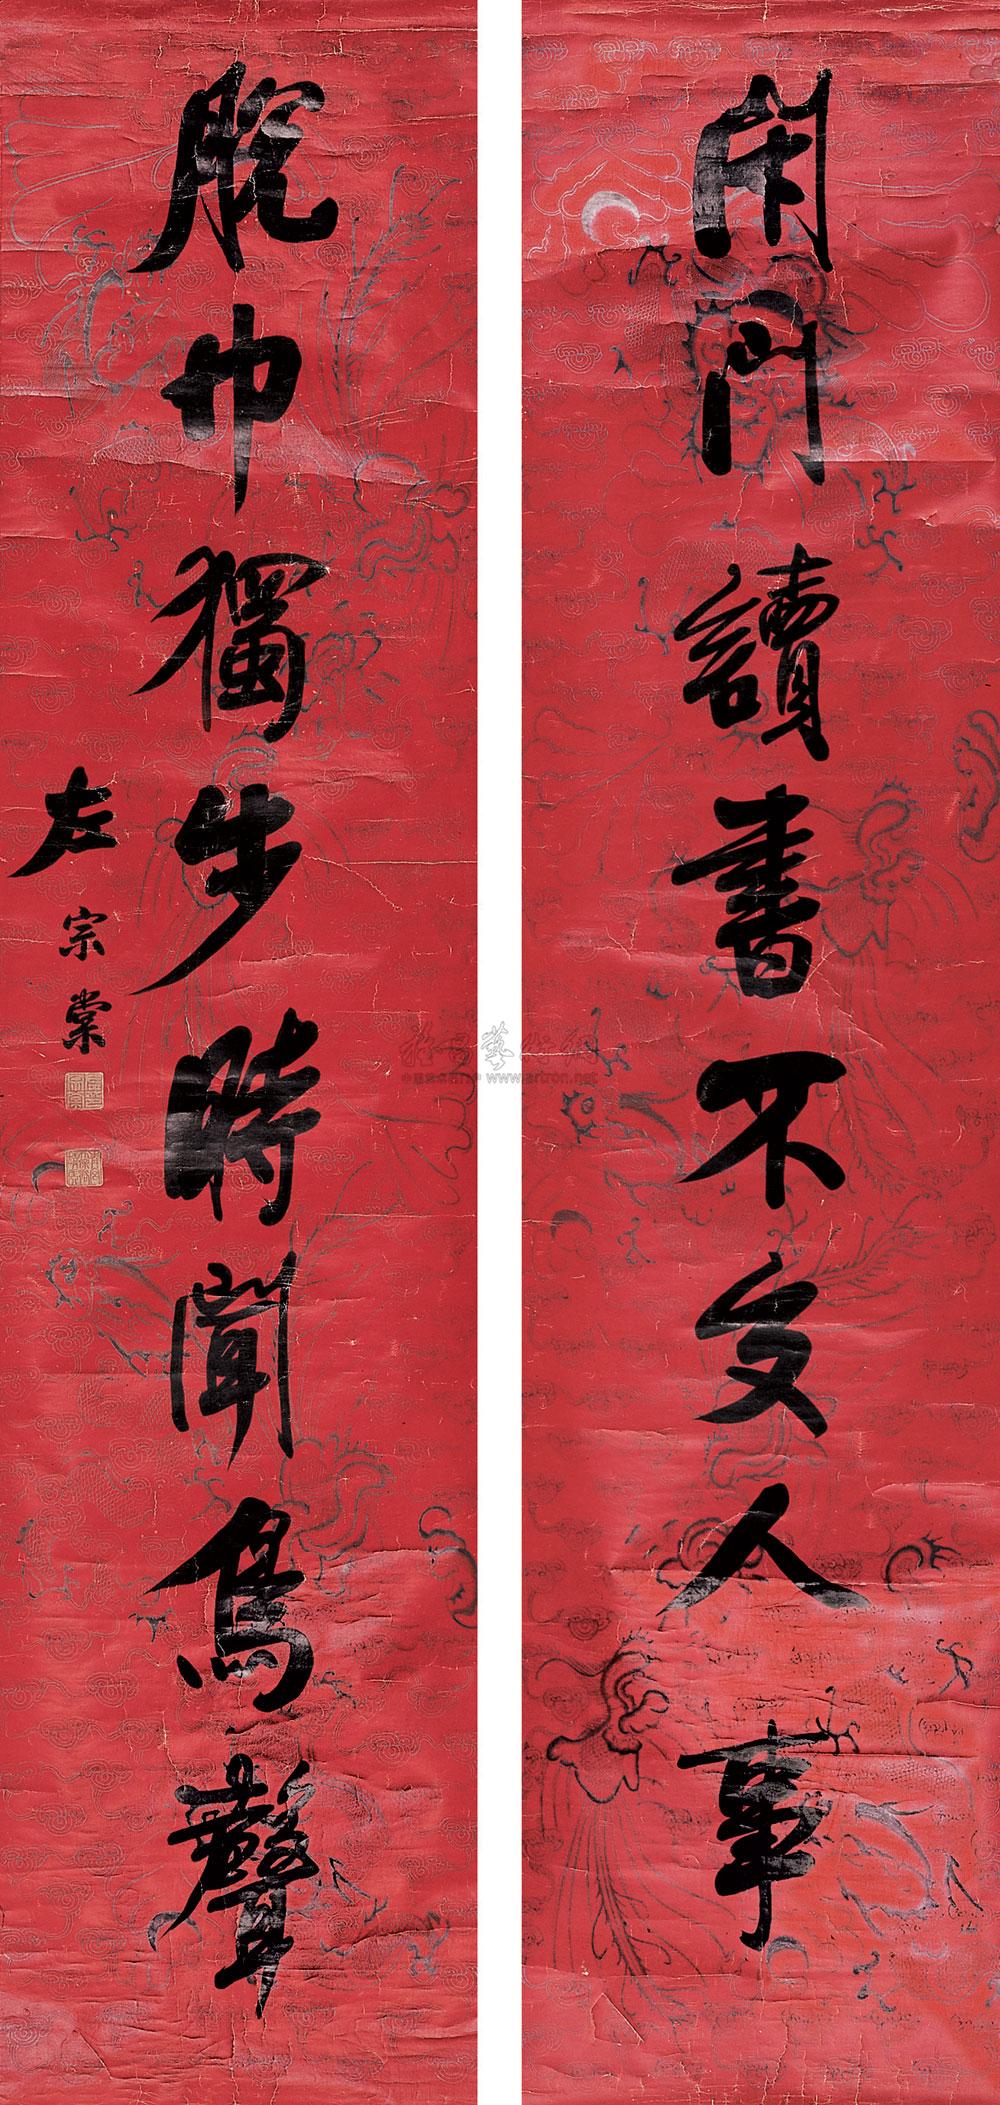 閉門讀書不交人事
脫巾獨步時聞鳥聲
左宗棠
雅昌藝術網
www.artron.net